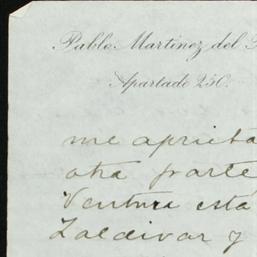 Pablo Martinez del
Apartado 250.
me aprieta
otra parte
Ventura está
Zaldivar y